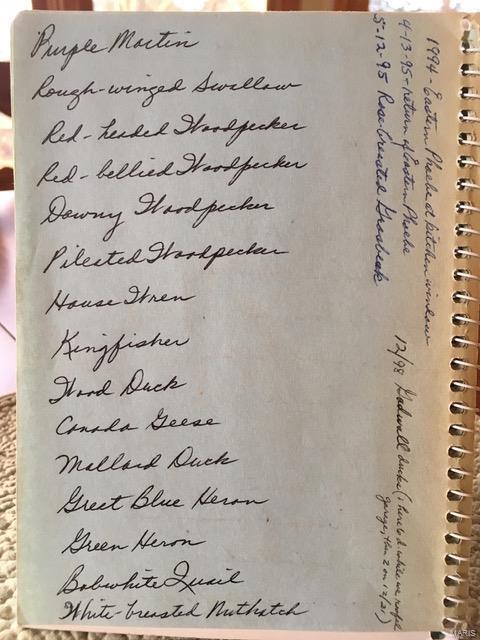 Purple Martin
Rough-winged Swallow
Red-headed Woodpecker
Red-bellied Woodpecker
Downy Woodpecker
Pileated Woodpecker
House Wren
Kingfisher
Wood Duck
Canada Geese
Mallard Duck
Great Blue Heron
Green Heron
Bobwhite Quail
White-breasted Nuthatch
1994 - Eastern Phoebe at kitchen window
4-13-95 - return of Eastern Phoebe
5-12-95 Rose-breasted Grosbeak
12/98 Gadwall ducks (1 here 6 d. while we
garage, then 2 on 12/21)
MARIS